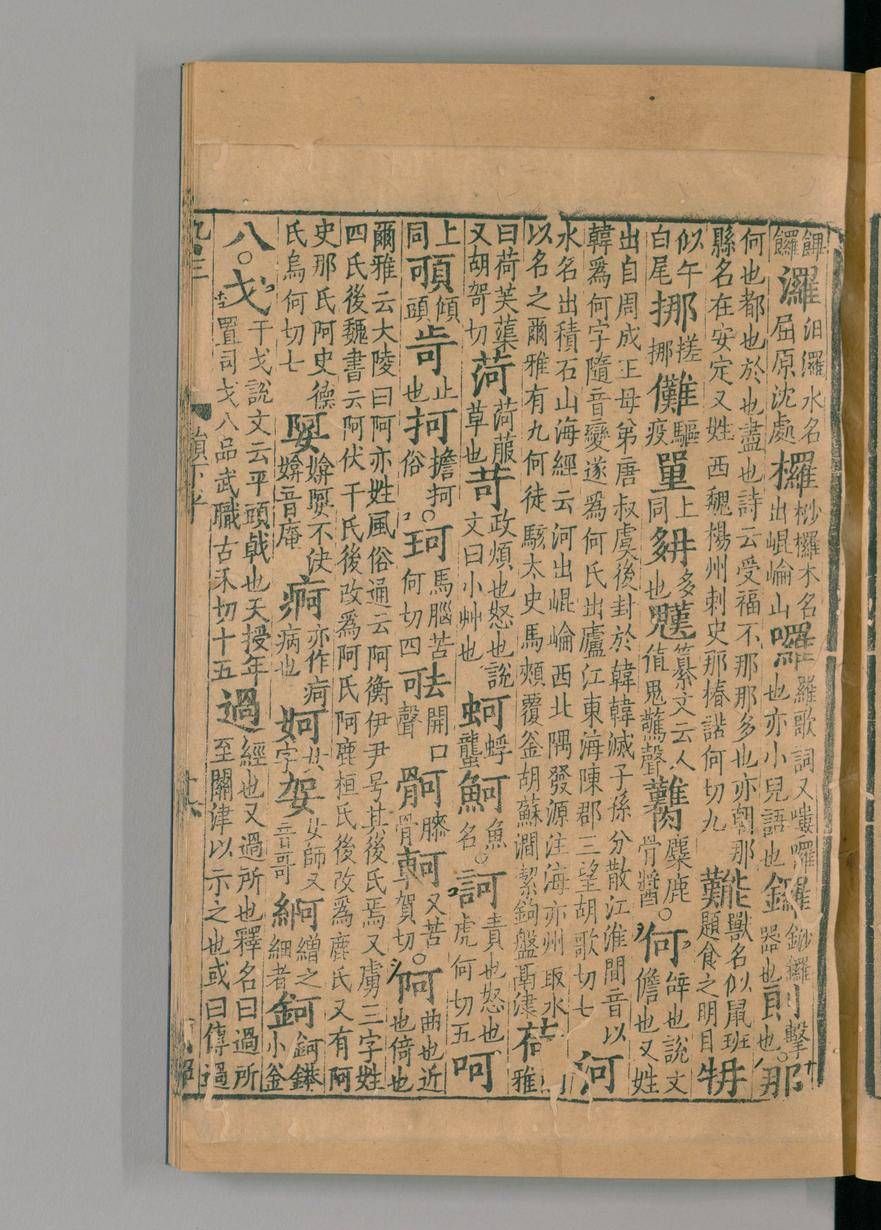 饆饠灑汨羅水名屈原沈處欏桫欏木名出崐崘山囉囉歌詞又嘍囉也亦小兒語也鑼鈔鑼器也擊也○那
何也都也於也盡也詩云受福不那那多也亦朝那縣名在安定又姓西魏楊州刺史那椿諾何切九獸名似鼠班題食之明目
似牛白尾挪搓挪儺驅疫單上同多也纂文云人值鬼驚聲臡麋鹿骨醬○何辝也說文儋也又姓
出自周成王母弟唐叔虞後封於韓韓滅子孫分散江淮間音以韓爲何字隨音變遂爲何氏出廬江東海陳郡三望胡歌切七河
水名出積石山海經云河出崐崘西北隅發源注海亦州取水以名之爾雅有九何徒駭太史馬頰覆釜胡蘇澗絜鉤盤鬲津荷雅
曰荷芙蕖又胡哿切菏菏菔草也苛政煩也怒也說文曰小艸也蚵蜉蠪魺魚名○訶責也怒也虎何切五呵
上同傾頭止也抲擔抲俗○珂馬腦苦何切四呿開口聲䯊膝骨軻又苦賀切○阿曲也近也倚也
爾雅云大陵曰阿亦姓風俗通云阿衡伊尹号其後氏焉又虜三字姓四氏後魏書云阿伏干氏後改爲阿氏阿鹿桓氏後改爲鹿氏又有阿
史那氏阿史德氏烏何切七娿媕娿不決媕音庵痾亦作疴病也妸女字㚙女師又音哥繒之細者錒錒䥈小釜
八○戈干戈說文云平頭戟也天授年置司戈八品武職古禾切十五過經也又過所也釋名曰過所至關津以示之也或曰傳過
韻下平
十六